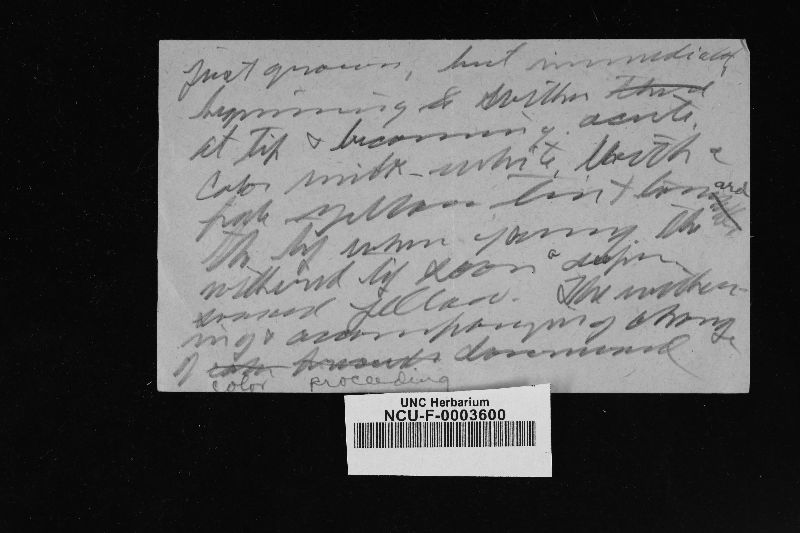 just grown, but immediately
beginning to wither
at tip & becoming acute.
Color milk-white with a
pale yellow tint toward
the tip when young, the
withered tip soon a
yellow. The wither-
ing & accompanying change
of color proceeding downward
UNC Herbarium
NCU-F-0003600